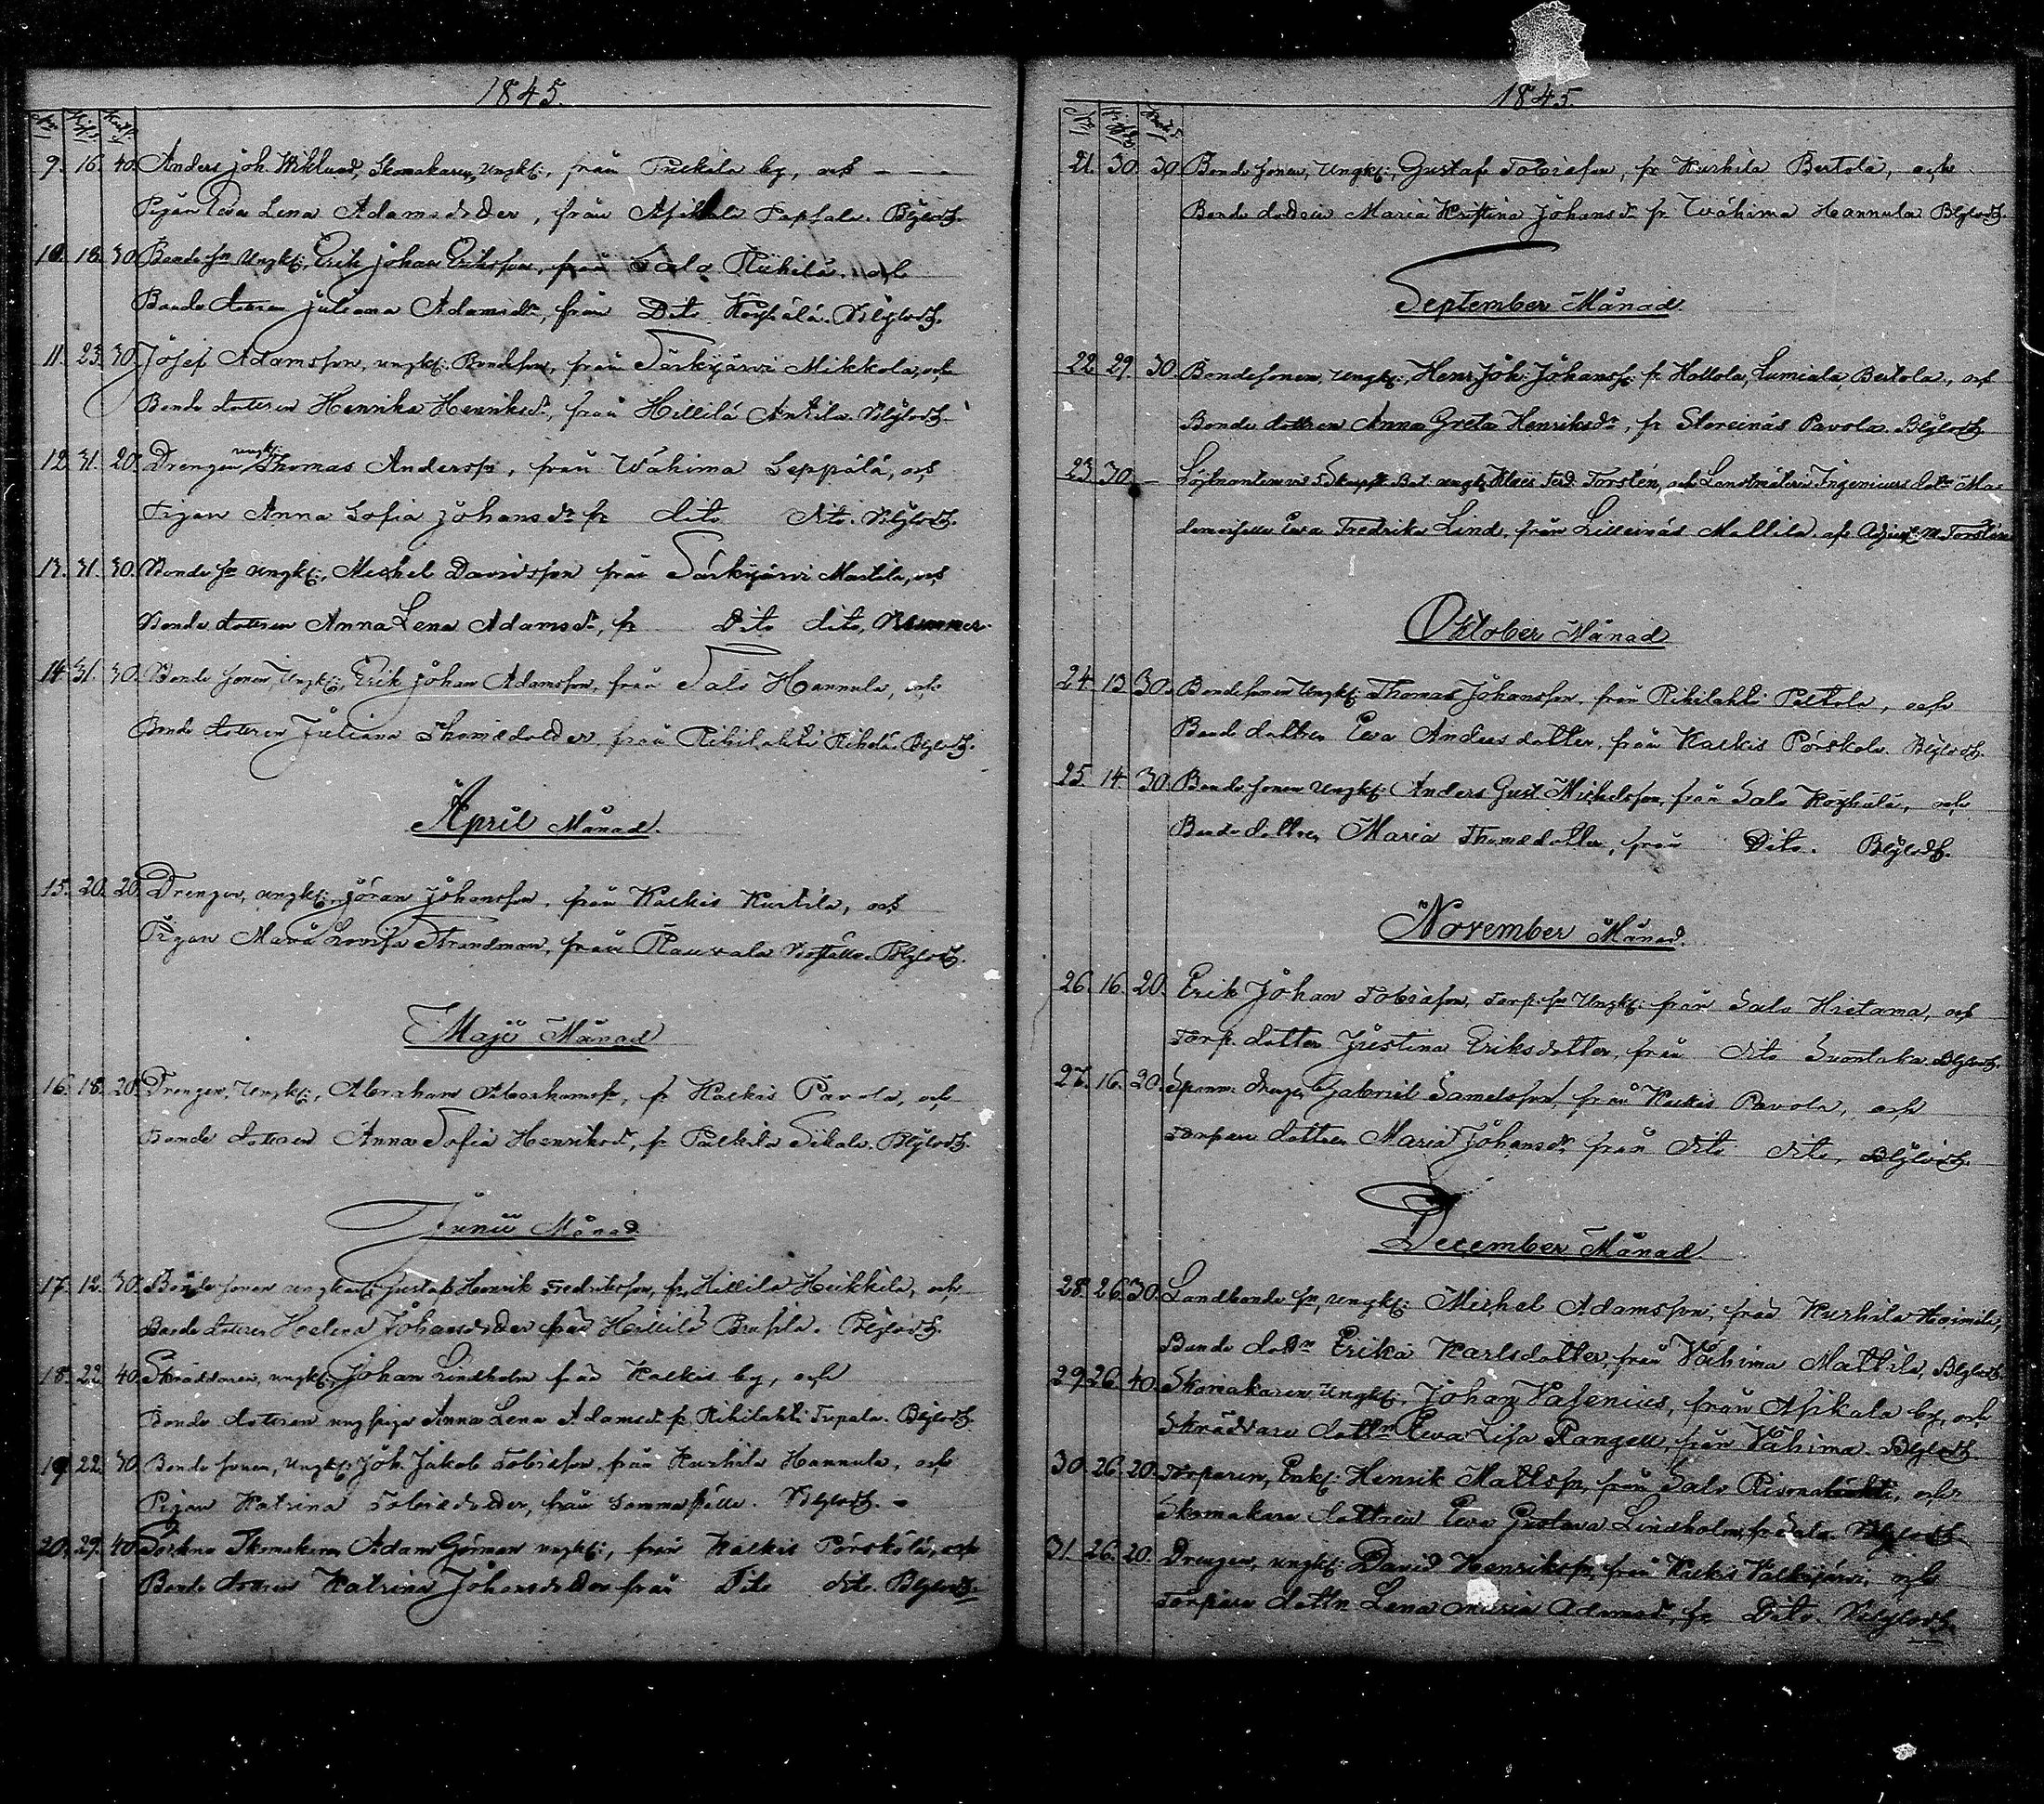 1845.
9. 16. 40. Anders Joh. Wiklund, Skomakaren, Ungk:, från Pulkila by, och
Pigan Eva Lena Adamsdoder, från Asikkala
10. 18. 30. Bonde sn Ungk: Erik Johan Eriksson, från Salo och
Bonde dottren Juliana Adamsdr, från Dito Köyhälä.
11. 23. 30. Josef Adamsson, ungk: Bondeson, från Särkijärvi Mikkola, och
Bonde dottren Henrika Henriksdr, från Hillilä Antila.
12. 31. 20. Drengen ungk: Thomas Anderss:, från Wähima Seppälä, och
Pigan Anna Sofia Johansdr fr dito dito.
13. 31. 30. Bonde sn Ungk:, Michel Davidsson från Särkijärvi Martila, och
Bonde dottren Anna Lena Adamsdr, fr Dito dito,
14. 31. 30. Bonde sonen, Ungk:, Erik Johan Adamsson, från Salo Hannula, och
Bonde dottren Juliana Thomædoder från Rihilahti
April Månad.
15. 20. 20. Drengen, ungk: Jöran Johansson, från Kalkis och
Pigan Maria Lovisa Strandman, från
Maji Månad
16. 18. 20. Drengen, Ungk:, Abraham Abrahamss:, fr Kalkis Pavola, och
Bonde dottren Anna Sofia Henriksdr, fr Pulkila
Junii Månad
17. 12. 30. Bonde sonen ungk: Gustaf Henrik Fredriksson, fr, Hillilä Heikkilä, och
Bonde dottren Helena Johansdoder från Hillilä
18. 22. 40. Skräddaren, ungk:, Johan Lindholm från Kalkis by, och
Bonde dottren Anna Lena Adamsdr fr, Rihilahti
19. 22. 30. Bonde sonen, Ungk: Joh. Jakob Tobiasson, från Kurhila Hannula, och
Pigan Katrina Tobiædoder, från
20. 29. 40. Skomakaren Adam Görman ungk:, från Kalkis Pörskölä, och
Bonde dottren Katrina Johansdoder från Dito dito.
1845.
21. 30. 30. Bonde sonen, Ungk:, Gustaf Tobiasson, fr Kurhila Bertola, och
Bonde dottren Maria Kristina Johansdr fr Wähima Hannula
September Månad.
22. 29. 30. Bondesonen, Ungk:, Henr Joh: Johanss: fr Hollola, Lumiala, Bertola, och
Bonde dottren Anna Greta Henriksdr, fr Storeinäs Pavola.
23. 30. — ungk: Ferd. Forstén, och Landtmäteri Ingenieurs dotr Ma-
demoiselle Eva Fredrika Lind, från Lilleinäs Mattila, af Adjunct M. Forstén
Oktober Månad
24. 13. 30. Bondesonen Ungk: Thomas Johansson, från Rihilahti Peltola, och
Bonde dottren Eva Andersdotter, från Kalkis Pörskölä.
25. 14. 30. Bonde sonen Ungk: Anders Gust. Michelsson, från Salo Köyhälä, och
Bonde dottren Maria Thomædotter, från Dito.
November Månad.
26. 16. 20. Erik Johan Tobiasson, Torp. sn Ungk: från Salo Hietama, och
Torp. dotter Justina Eriksdotter, från dito
27. 16. 20. Gabriel Samelsson, från Kalkis Pavola, och
Torpare dottren Maria Johansdr, från dito dito,
December Månad.
28. 26. 30. Landbonde sn, ungk: Michel Adamsson, från Kurhila
Bonde dottrn Erika Karlsdotter, från Vähima Mattila,
29. 26. 40. Skomakaren Ungk:, Johan Vasenius, från Asikala by, och
Skräddare dottrn Eva Lisa Rangell, från Vähima.
30. 26. 20. Torparen, Enk: Henrik Mattss:, från Salo och
Skomakare dottren Eva Gustava Lindholm, fr Salo.
31. 26. 20. Drengen, ungk: David Henrikss:, från Kalkis Valkijärvi, och
Torpare dottn Lena Maria Adamsdr, fr Dito.